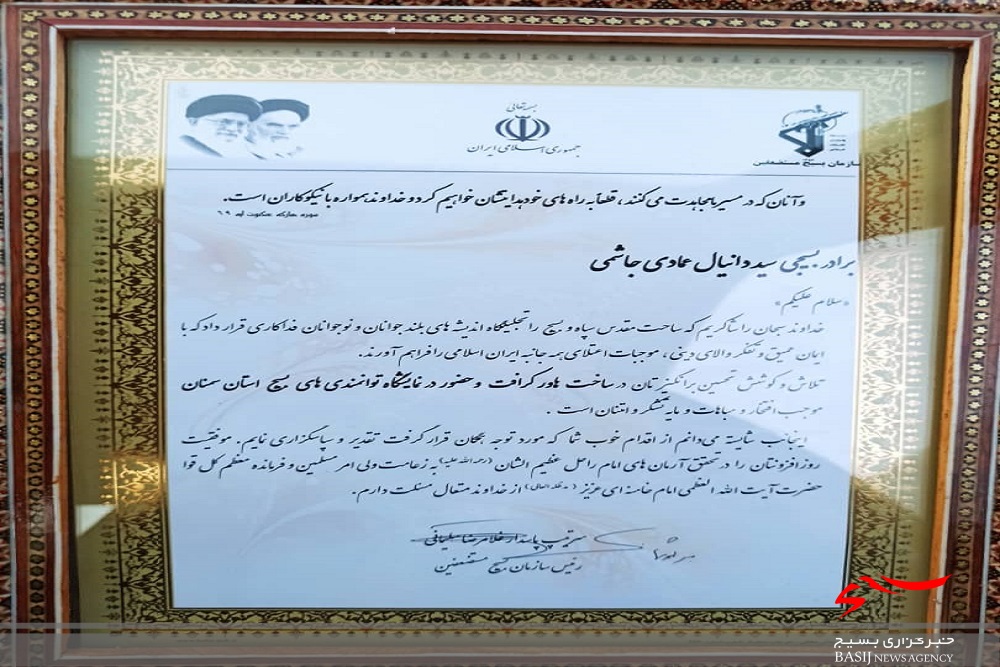 بسمه تعالی
جمهوری اسلامی ایران
سازمان بسیج مستضعفین
و آنان که در مسیر ما مجاهدت می کنند، قطعاً به راه های خود هدایتشان خواهیم کرد و خداوند همواره با نیکوکاران است.
سوره مبارکه عنکبوت آیه ۶۹
برادر بسیجی سید دانیال عمادی جاشمی
«سلام علیکم»
خداوند سبحان را شاکریم که ساحت مقدس سپاه و بسیج را تجلیگاه اندیشه های بلند جوانان و نوجوانان فداکاری قرار داد که با
ایمان عمیق و تفکر والای دینی، موجبات اعتلای همه جانبه ایران اسلامی را فراهم آورند.
تلاش و کوشش تحسین برانگیزتان در ساخت هاورکرافت و حضور در نمایشگاه توانمندی های بسیج استان سمنان
موجب افتخار و مباهات و مایه تشکر و امتنان است.
اینجانب شایسته می دانم از اقدام خوب شما که مورد توجه همگان قرار گرفت تقدیر و سپاسگزاری نمایم. موفقیت
روزافزونتان را در تحقق آرمان های امام راحل عظیم الشان (رحمه الله علیه) به زعامت ولی امر مسلمین و فرمانده معظم کل قوا
حضرت آیت الله العظمی امام خامنه ای عزیز (مدظله العالی) از خداوند متعال مسئلت دارم.
سرتیپ پاسدار غلامرضا سلیمانی
رئیس سازمان بسیج مستضعفین
خبرگزاری بسیج
BASIJ NEWS AGENCY